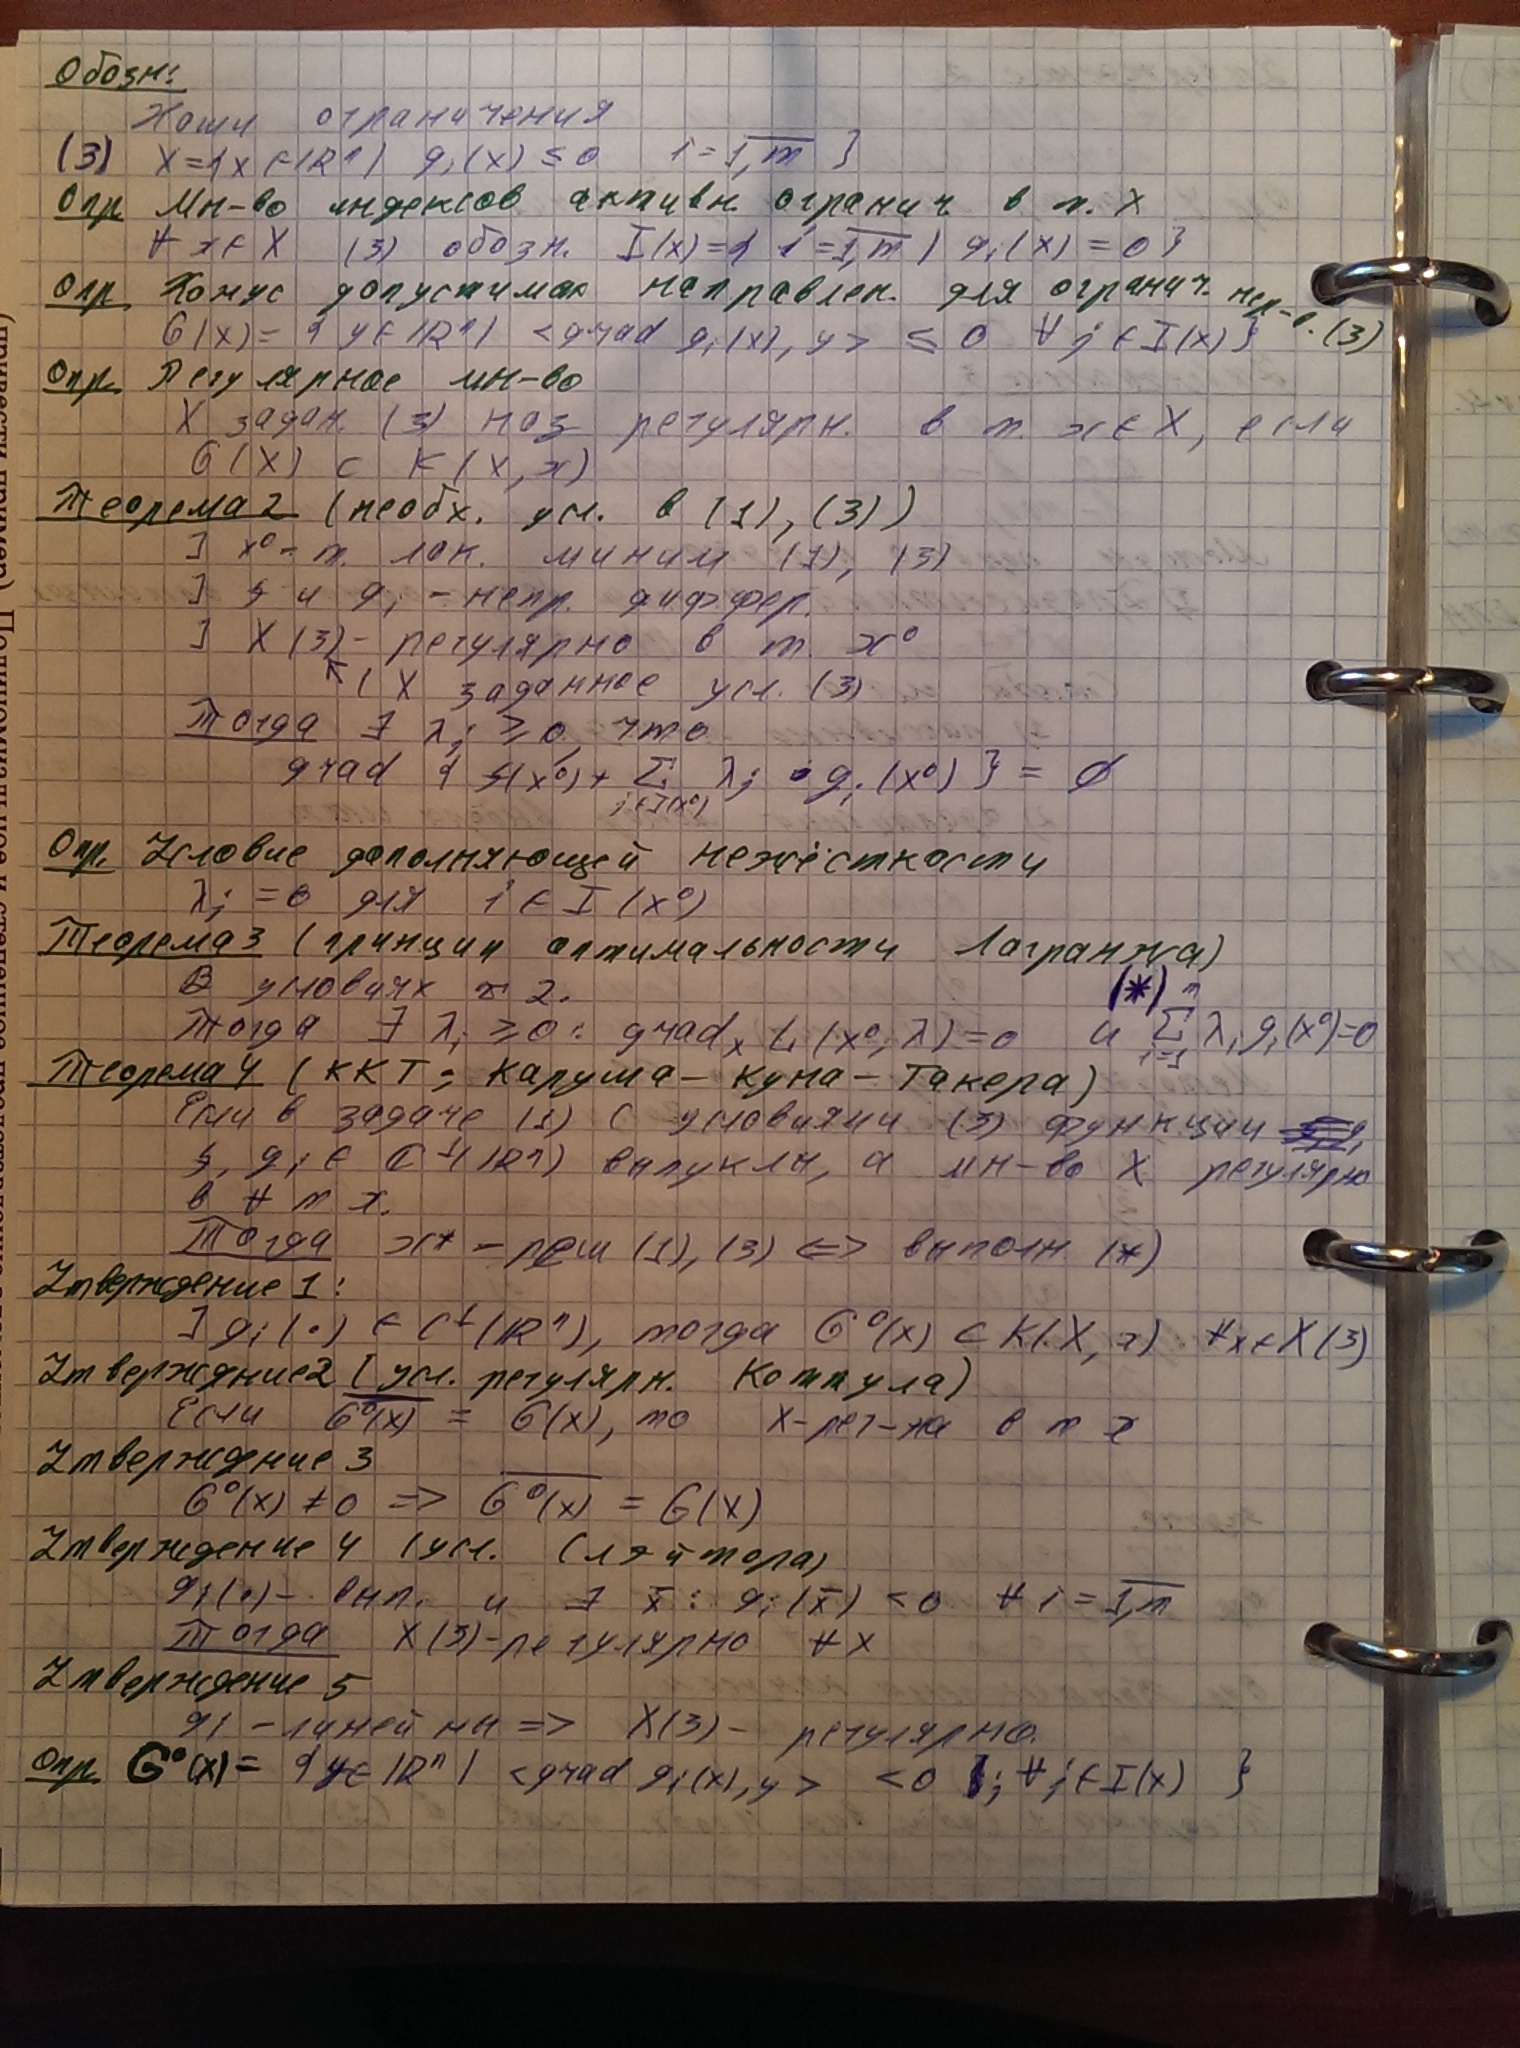 Обозн:
Хотим ограничения
(3) X={x∈ℝⁿ| gᵢ(x) ≤ 0 i=1,m }
Опр Мн-во индексов активн. огранич в т. X
∀ x∈X (3) обозн. I(x)={ i=1,m | gᵢ(x) = 0}
Опр Конус допустимых направлен. для огранич. нер-в. (3)
G(x)= {y∈ℝⁿ| <grad gᵢ(x), y> ≤ 0 ∀ j ∈ I(x)}
Опр Регулярное мн-во
X задан. (3) наз регулярн. в т. x∈X, если
G(X) ⊂ K(X,x)
Теорема 2 (необх. усл. в (1), (3))
] x⁰ - т. лок. миним (1), (3)
] f и gᵢ - непр. диффер.
] X(3) - регулярно в т. x⁰
↖ ( X заданное усл. (3)
Тогда ∃ λⱼ ≥ 0, что
grad { f(x⁰) + Σ j∈I(x⁰) λⱼ · gⱼ (x⁰) } = ∅
Опр. Условие дополняющей нежёсткости
λⱼ = 0 для i ∈ I(x⁰)
Теорема 3 (принцип оптимальности Лагранжа)
В условиях т 2. (*)
Тогда ∃ λᵢ ≥ 0: gradₓ L(x⁰, λ) = 0 и Σ i=1 m λᵢ gᵢ(x⁰) = 0
Теорема 4 (ККТ = Каруша - Куна - Такера)
Если в задаче (1) с условиями (3) функции
f, gᵢ ∈ C¹(ℝⁿ) выпуклы, а мн-во X регулярно
в ∀ т x.
Тогда x* - реш (1), (3) <=> выполн (*)
Утверждение 1:
] gᵢ(·) ∈ C¹(ℝⁿ), тогда G⁰(x) ⊂ K(X, x) ∀x∈X(3)
Утверждение 2 (усл. регулярн. Коттула)
Если G⁰(x) = G(x), то X-рег-на в т x
Утверждение 3
G⁰(x) ≠ 0 => G⁰(x) = G(x)
Утверждение 4 (усл. Слэйтора)
gᵢ(·) - вып. и ∃ x̄ : gᵢ(x̄) < 0 ∀ i = 1,m
Тогда X(3)-регулярно ∀x
Утверждение 5
gᵢ - линейны => X(3) - регулярно.
Опр G⁰(x) = {y∈ℝⁿ | <grad gᵢ(x), y> < 0 ; ∀ j∈I(x) }